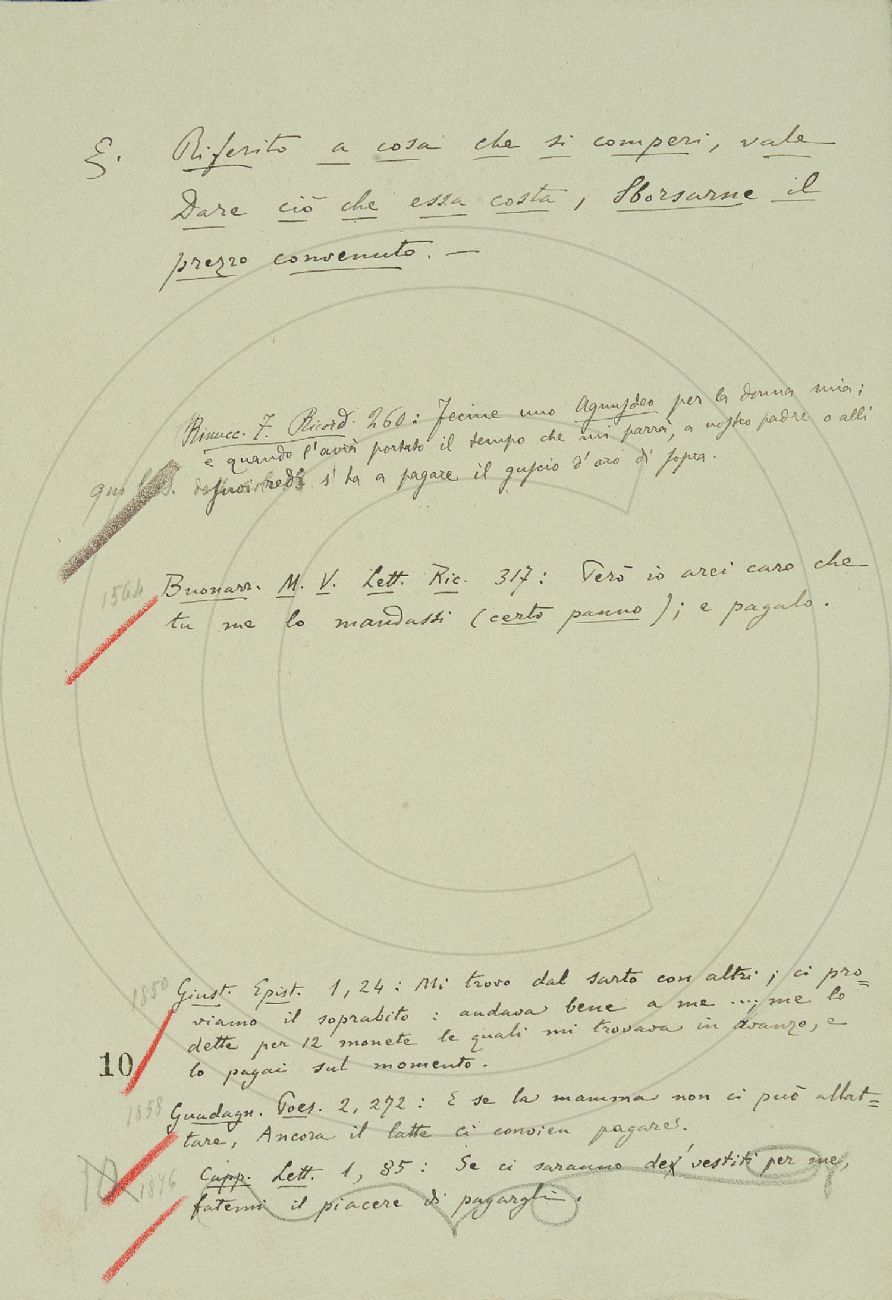 §. Riferito a cosa che si comperi, vale
Dare ciò che essa costa, Sborsarne il
prezzo convenuto. —
Rinucc. F. Ricord. 260: Fecine uno Agnusdeo per la donna mia;
e quando l'avrà portato il tempo che mi parrà, a nostro padre o alli
suoi redi s'ha a pagare il guscio d'oro di sopra.
1564 Buonarr. M. V. Lett. Ric. 317: Però io arei caro che
tu me lo mandassi (certo panno); e pagalo.
1850 Giust. Epist. 1, 24: Mi trovo dal sarto con altri; ci pro=
viamo il soprabito: andava bene a me ...; me lo
dette per 12 monete le quali mi trovava in avanzo, e
10 lo pagai sul momento.
1858 Guadagn. Poes. 2, 272: E se la mamma non ci può allat=
tare, Ancora il latte ci convien pagare.
1876 Capp. Lett. 1, 85: Se ci saranno de' vestiti per me,
fatemi il piacere di pagargli.